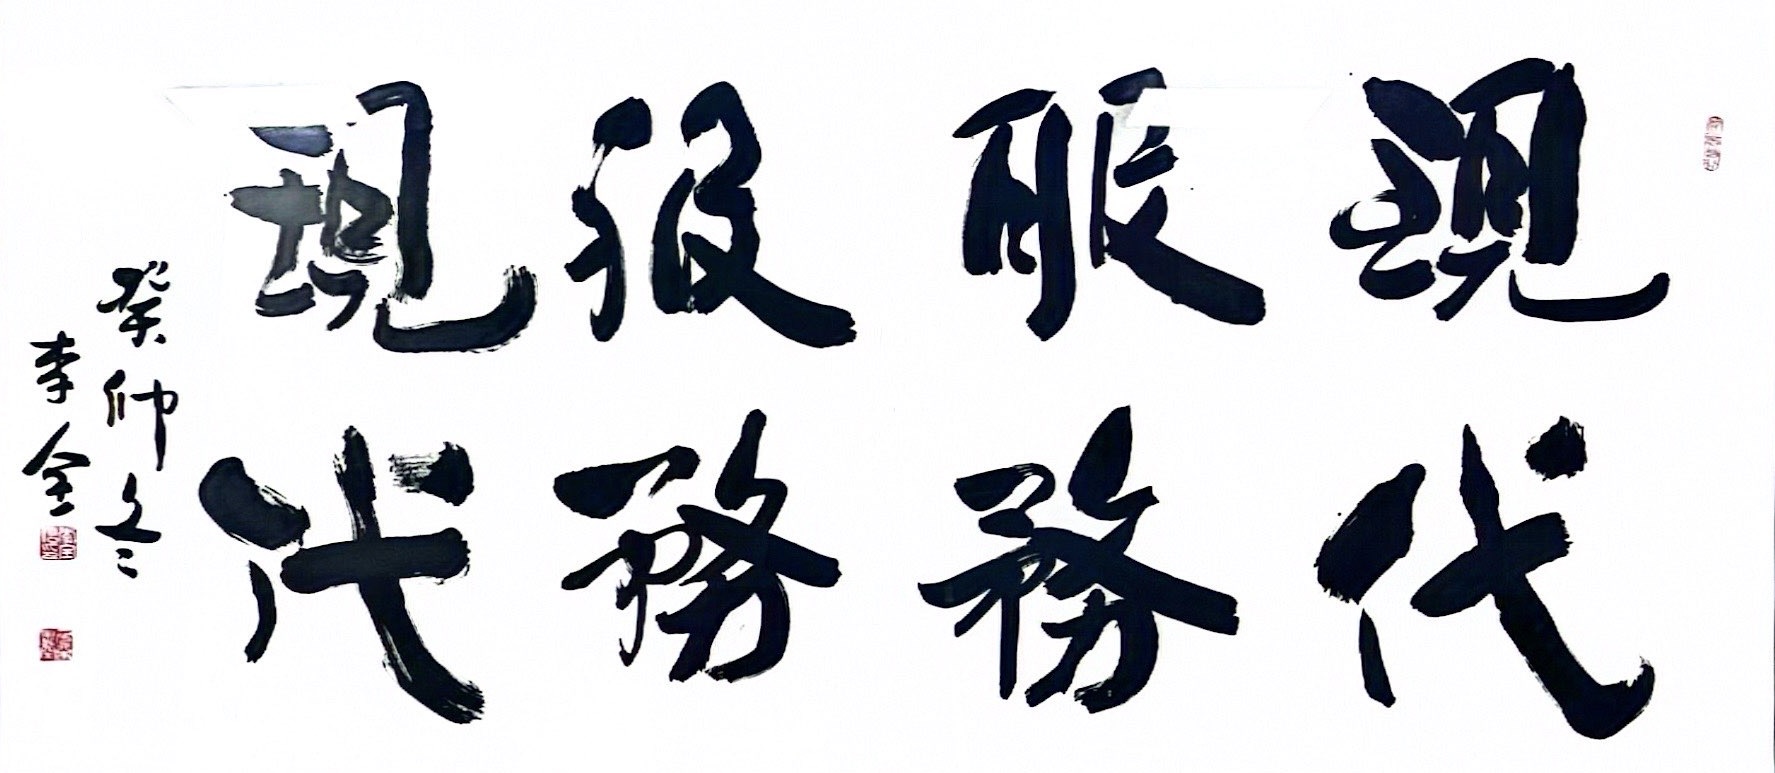 現代
服務
服務
現代
癸卯冬
李金